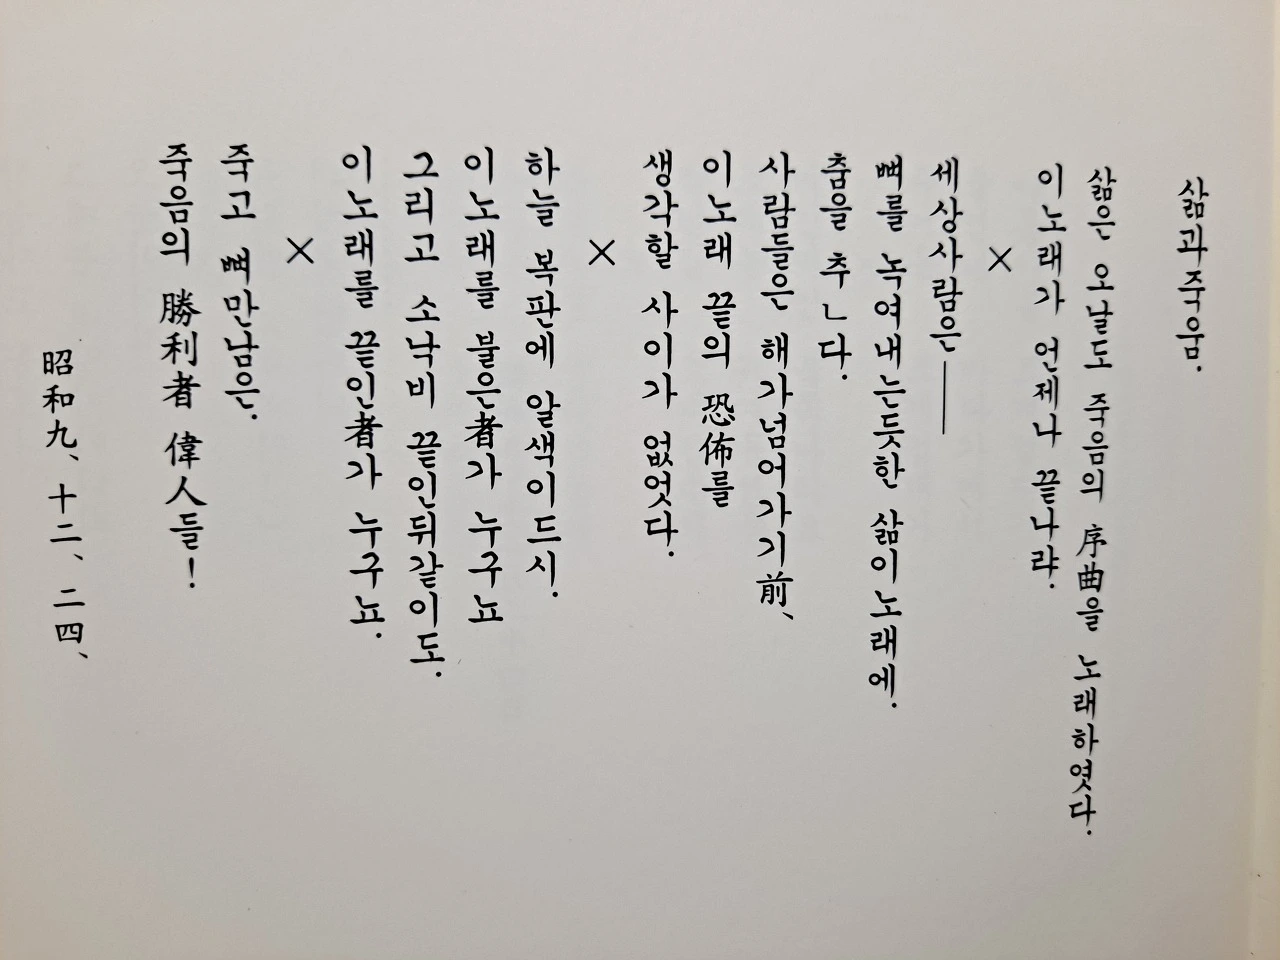 삶과죽움.
삶은 오날도 죽음의 序曲을 노래하엿다.
이노래가 언제나 끝나랴.
×
세상사람은──
뼈를 녹여내는듯한 삶이노래에.
춤을 추ㄴ다.
사람들은 해가넘어가기前、
이노래 끝의 恐怖를
생각할 사이가 없엇다.
×
하늘 복판에 알색이드시.
이노래를 불은者가 누구뇨
그리고 소낙비 끝인뒤같이도.
이노래를 끝인者가 누구뇨.
×
죽고 뼈만남은.
죽음의 勝利者 偉人들!
昭和九、十二、二四、